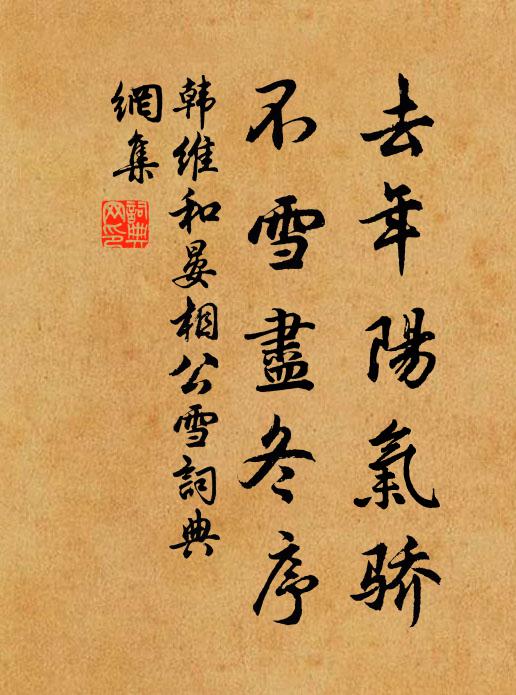 去年陽氣骄
不雪盡冬序
韩维和晏相公雪詞典
網集
詞典
网印